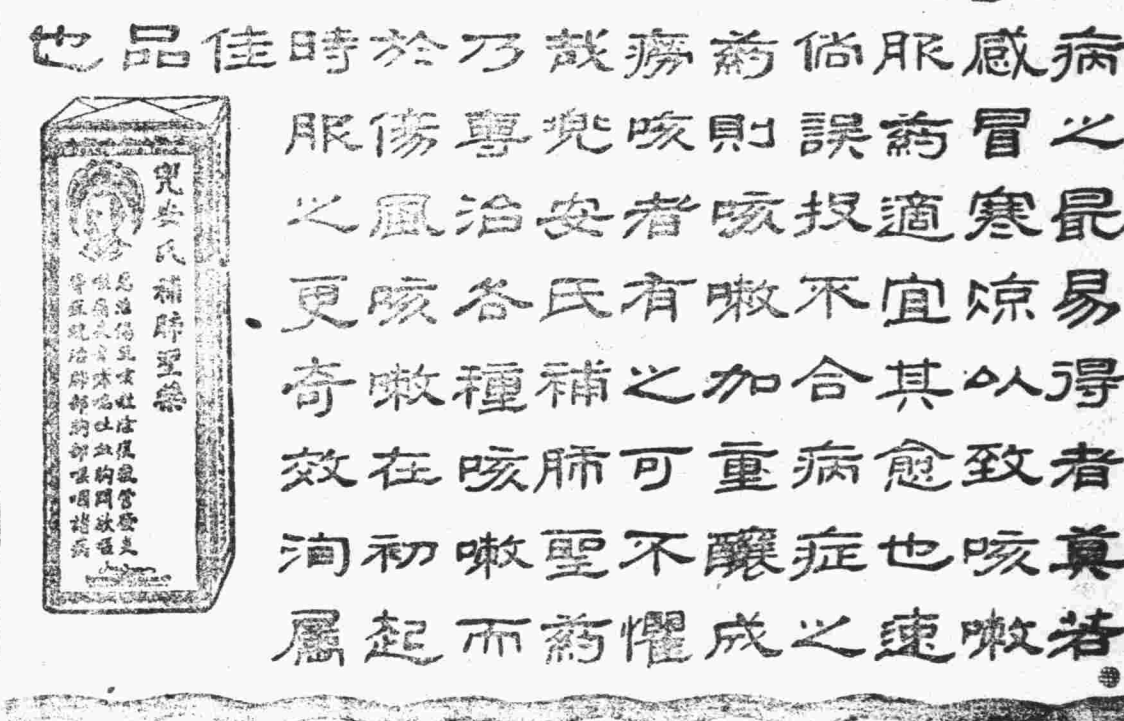 病之最易得者莫若
感冒寒涼以致咳嗽
服药適宜其愈也速
倘誤投不合病症之
药則咳嗽加重釀成
癆咳者有之可不懼
哉兜安氏補肺聖药
乃專治各種咳嗽而
於傷風咳嗽在初起
時服之更奇效洵屬
佳
品
也
兜安氏補肺聖藥